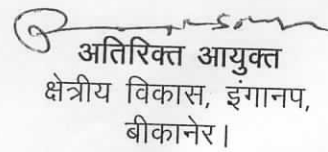 अतिरिक्त आयुक्त
क्षेत्रीय विकास, इंगानप,
बीकानेर।